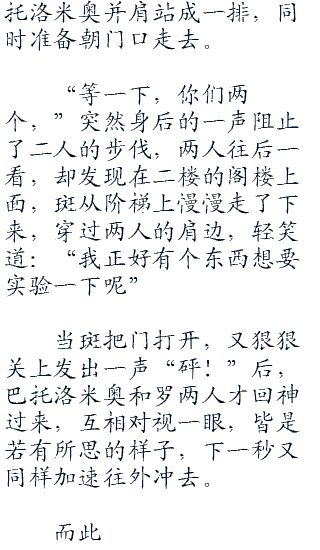 托洛米奥并肩站成一排，同
时准备朝门口走去。
“等一下，你们两
个，”突然身后的一声阻止
了二人的步伐，两人往后一
看，却发现在二楼的阁楼上
面，斑从阶梯上慢慢走了下
来，穿过两人的肩边，轻笑
道：“我正好有个东西想要
实验一下呢”
当斑把门打开，又狠狠
关上发出一声“砰！”后，
巴托洛米奥和罗两人才回神
过来，互相对视一眼，皆是
若有所思的样子，下一秒又
同样加速往外冲去。
而此